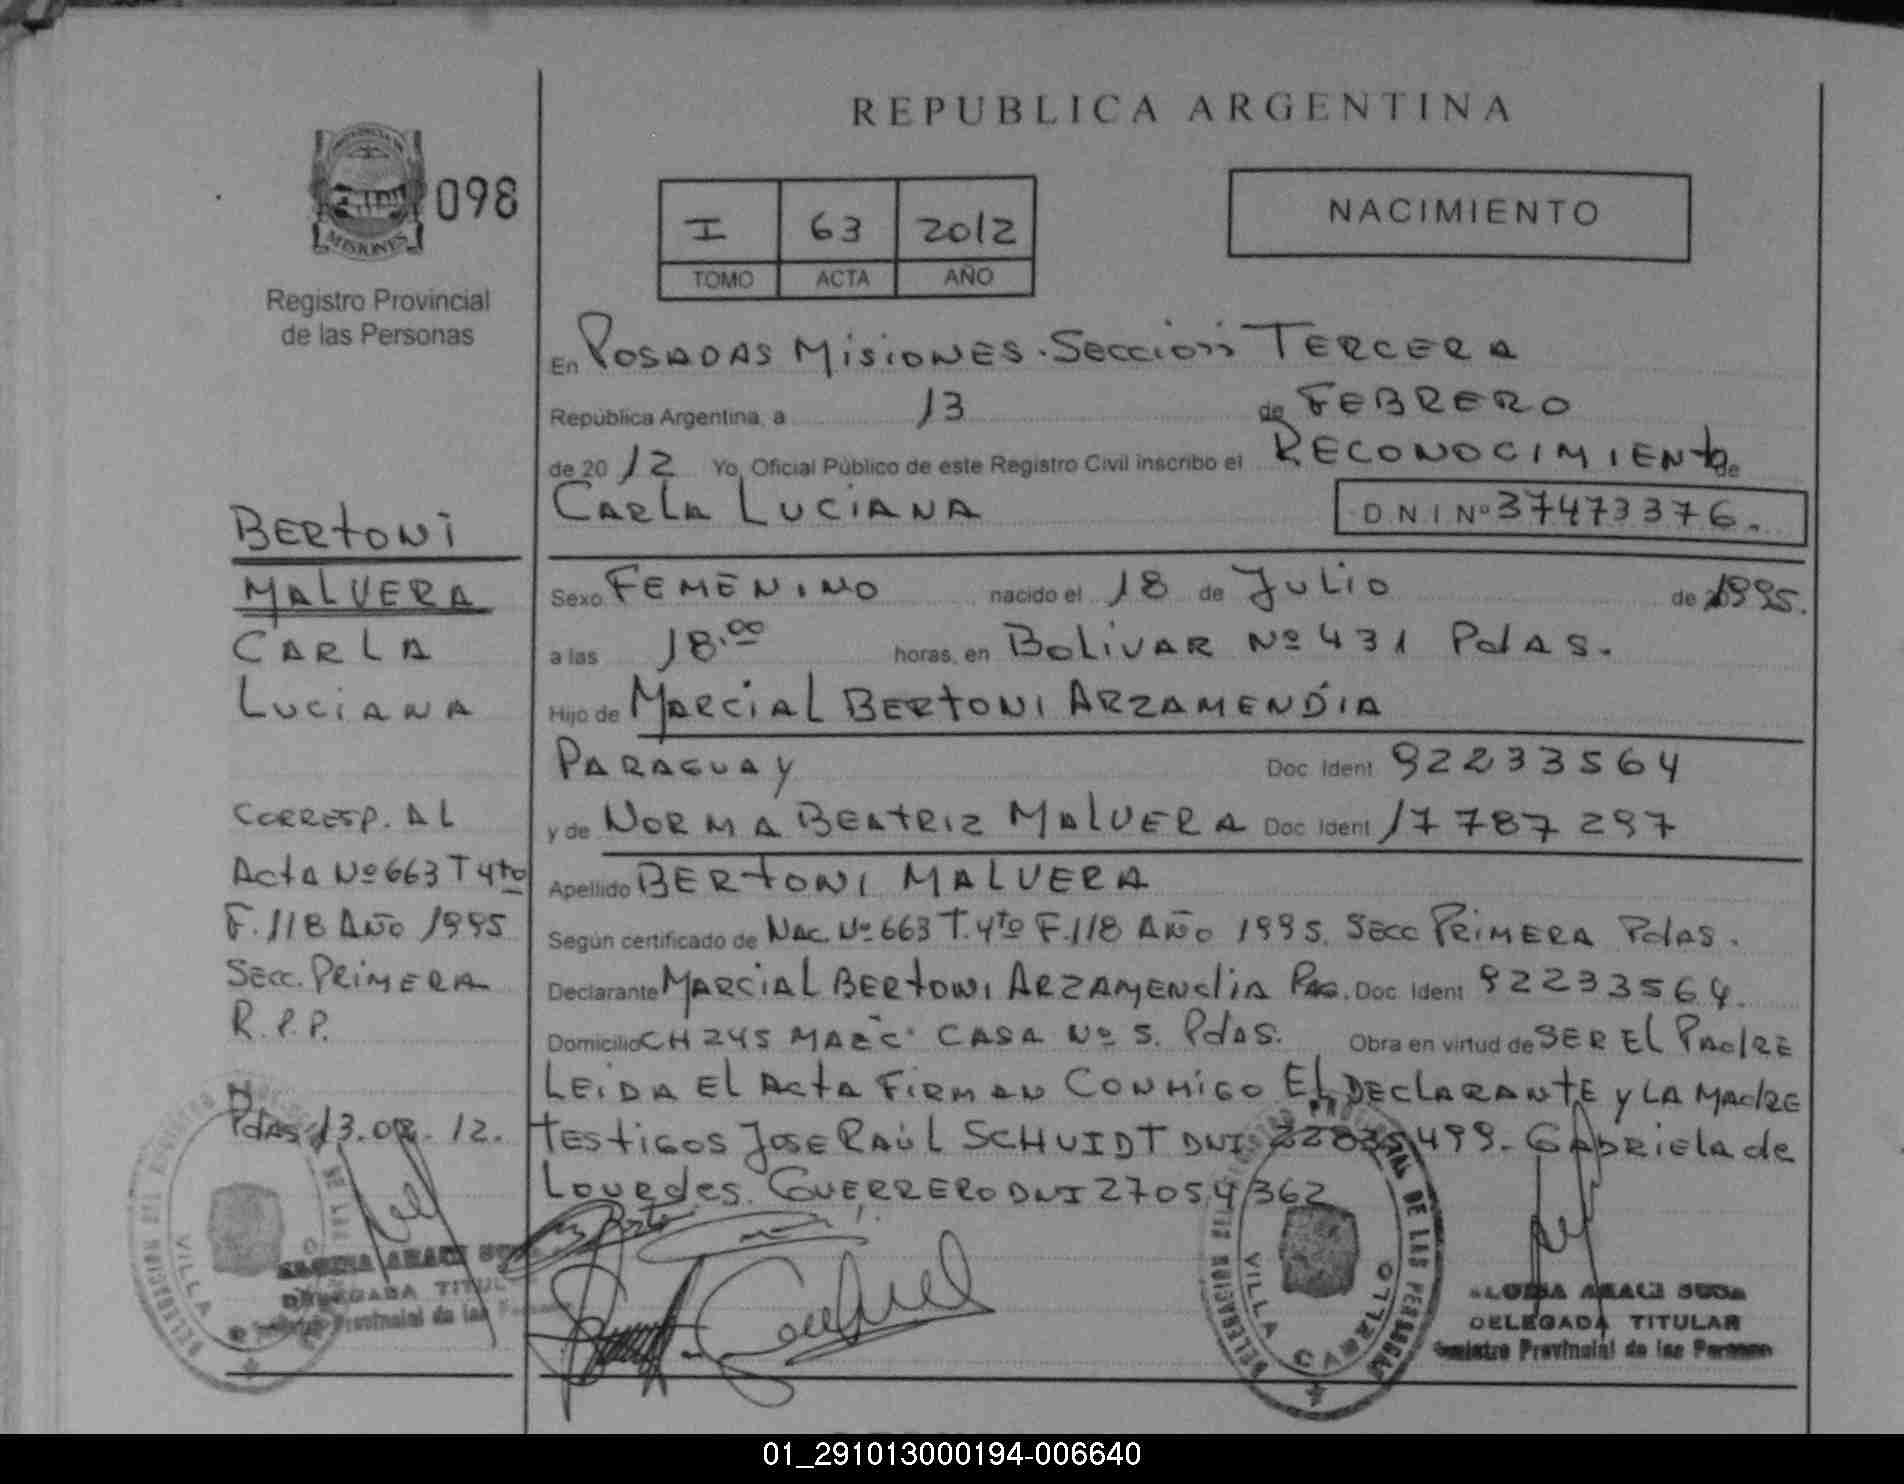 REPUBLICA ARGENTINA
098
MISIONES
Registro Provincial
de las Personas
I 63 2012
TOMO ACTA AÑO
NACIMIENTO
En POSADAS MISIONES. SECCION TERCERA
República Argentina, a 13 de FEBRERO
de 20 12 Yo, Oficial Público de este Registro Civil inscribo el RECONOCIMIENTO de
CARLA LUCIANA DNI Nº 37473376.
Sexo FEMENINO nacido el 18 de JULIO de 1995.
a las 18.00 horas, en BOLIVAR Nº 431 PdAS.
Hijo de MARCIAL BERTONI ARZAMENDIA
PARAGUAY Doc. Ident 92233564
y de NORMA BEATRIZ MALVERA Doc Ident 17787297
Apellido BERTONI MALVERA
Según certificado de NAC. Nº 663 T. 4to F. 118 AÑO 1995. SECC PRIMERA PdAS.
Declarante MARCIAL BERTONI ARZAMENDIA PAG. Doc. Ident 92233564.
Domicilio CH 245 CASA Nº 5. PdAS. Obra en virtud de SER EL PADRE
LEIDA EL ACTA FIRMAN CONMIGO EL DECLARANTE Y LA MADRE
TESTIGOS JOSE RAUL SCHVIDT DNI 22835499. GABRIELA de
LOURDES. GUERRERO DNI 27054362
BERTONI
MALVERA
CARLA
LUCIANA
CORRESP. AL
ACTA Nº 663 T 4to
F. 118 AÑO 1995
SECC. PRIMERA
R.P.P.
PdAS 13.02.12.
VILLA
DELEGADA TITULAR
Provincial de las
DE LAS PERSONAS
VILLA CABELLO
DELEGADA TITULAR
Registro Provincial de las Personas
01_291013000194-006640